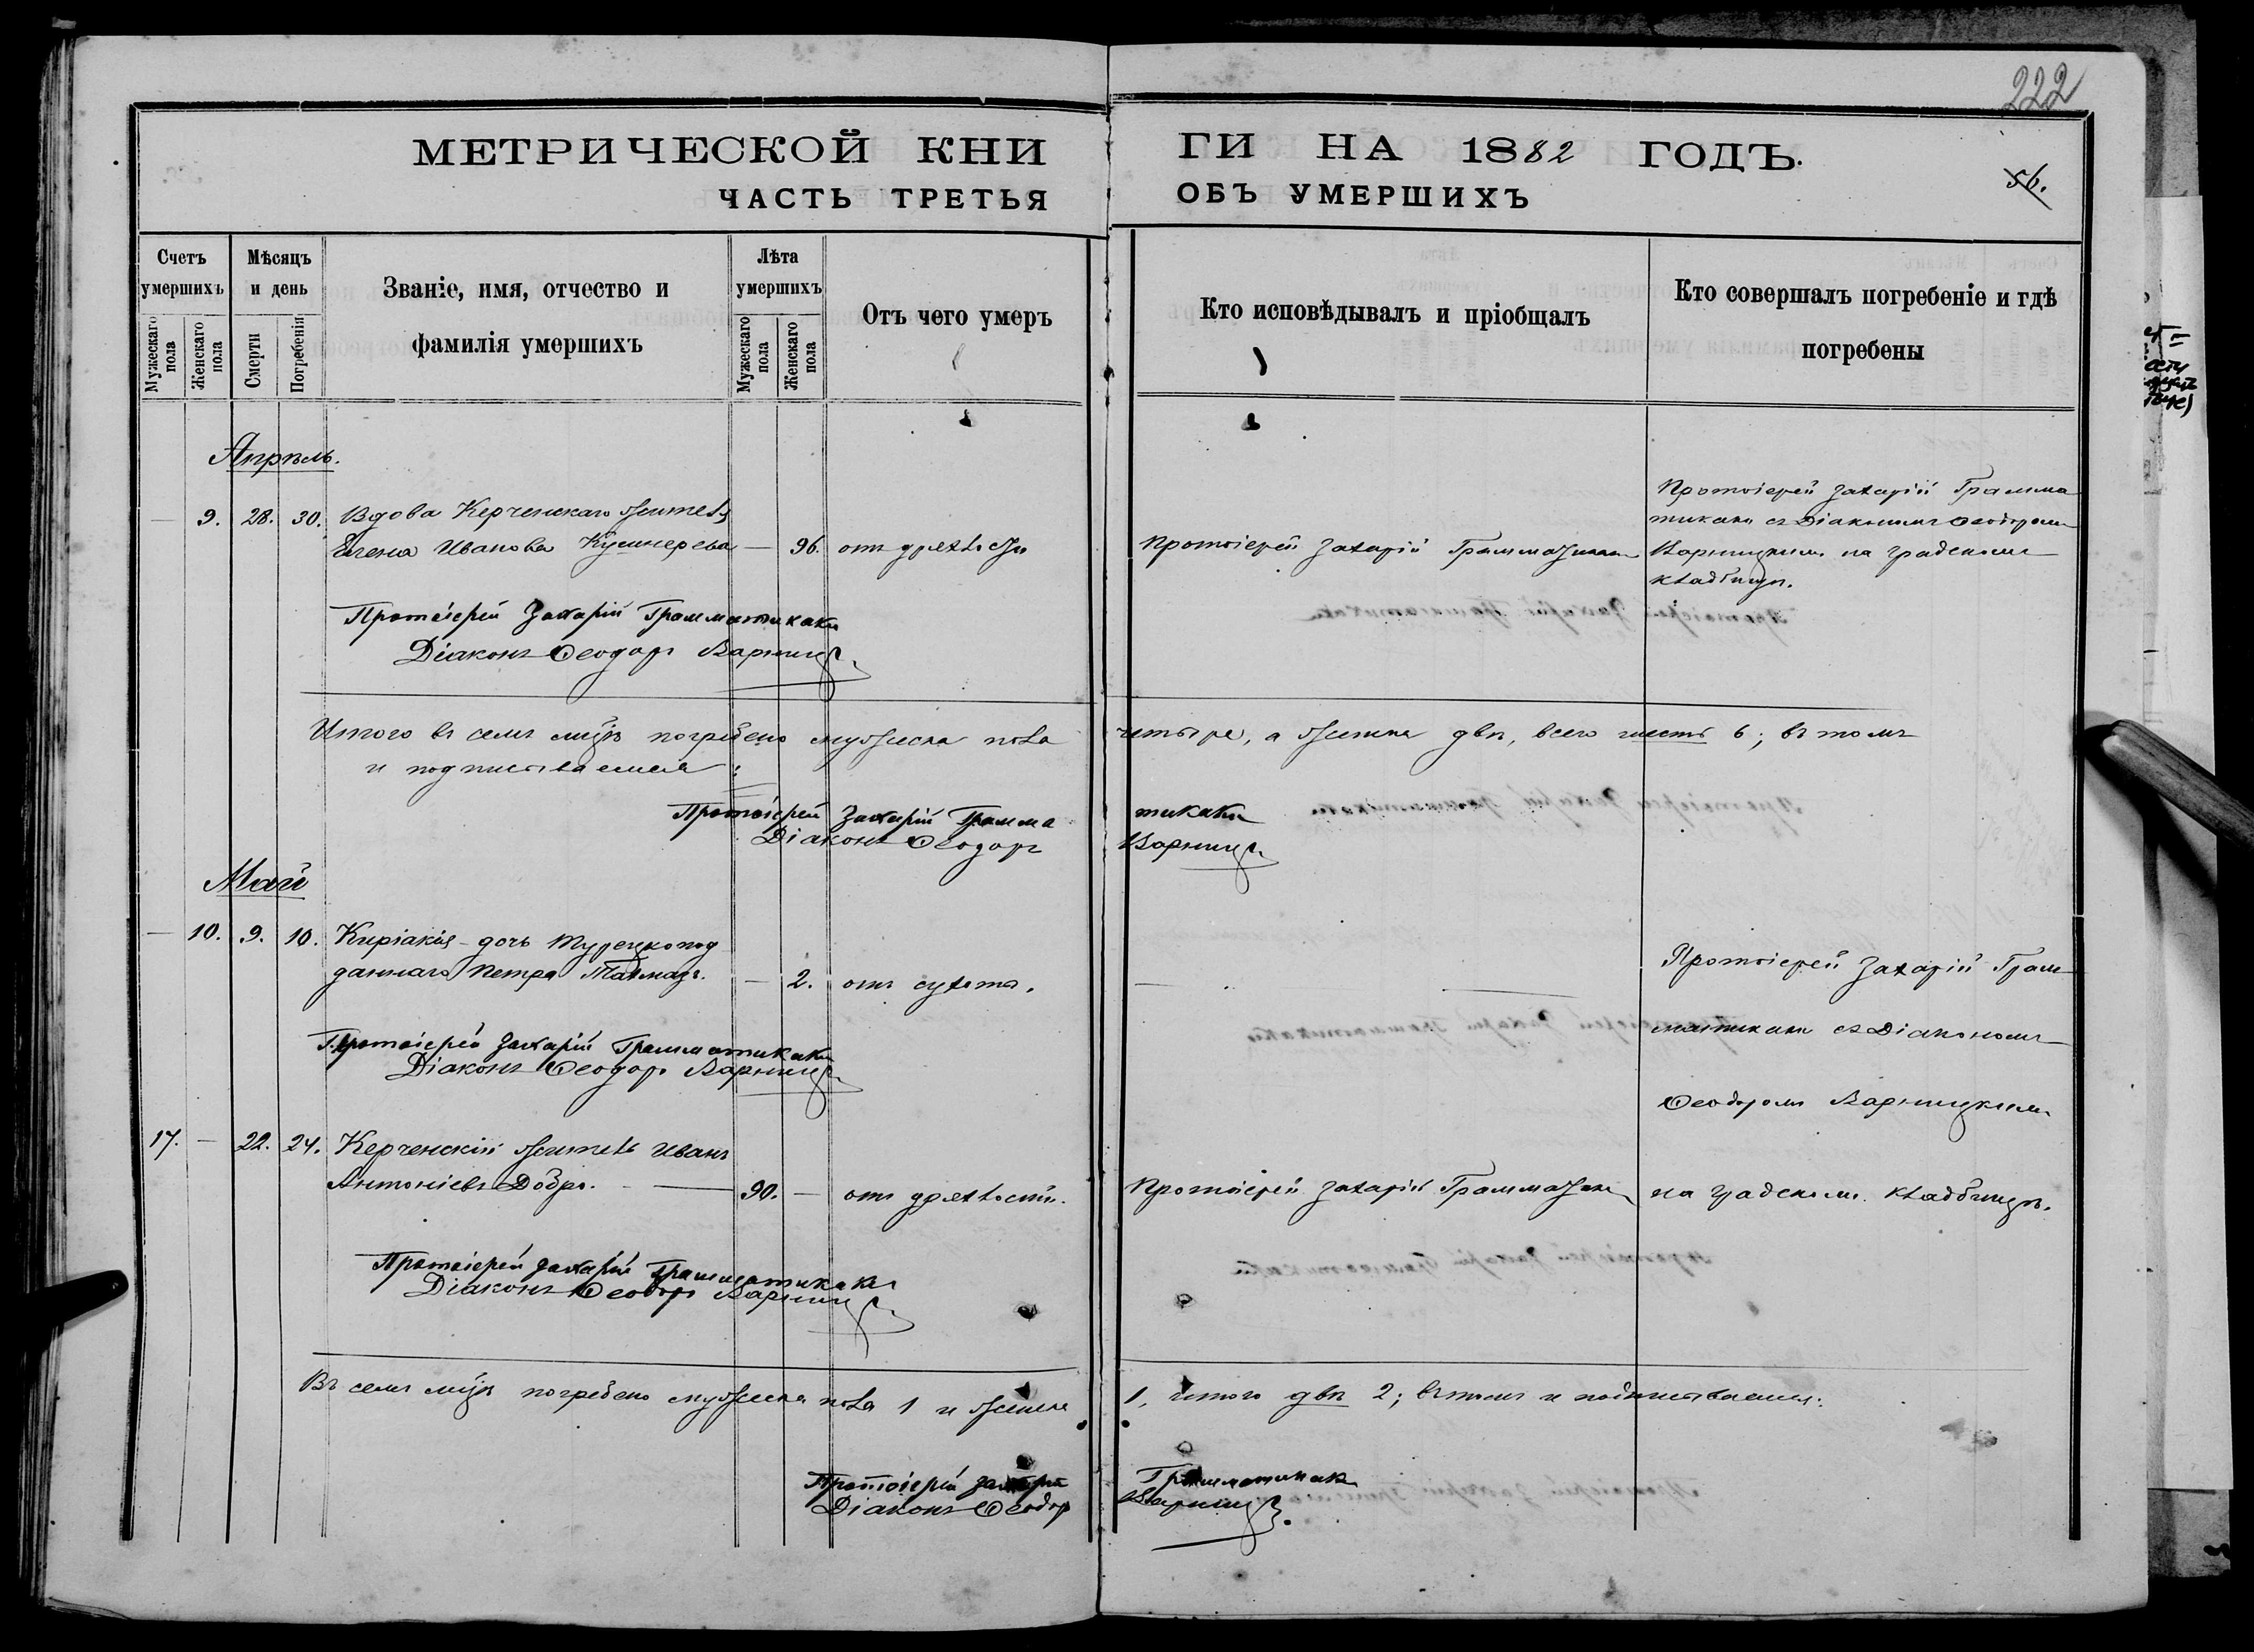 222
МЕТРИЧЕСКОЙ КНИГИ НА 1882 ГОДЪ.
ЧАСТЬ ТРЕТЬЯ ОБЪ УМЕРШИХЪ
56.
Счетъ умершихъ
Мужескаго пола
Женскаго пола
Мѣсяцъ и день
Смерти
Погребенія
Званіе, имя, отчество и
фамилія умершихъ
Лѣта умершихъ
Мужескаго пола
Женскаго пола
Отъ чего умеръ
Кто исповѣдывалъ и пріобщалъ
Кто совершалъ погребеніе и гдѣ
погребены
Апрѣль.
— 9. 28. 30. Вдова Керченскаго жителя
Елена Иванова Кушнерева — 96. отъ дряхлости
Протоіерей Захарій Грамматикаки
Протоіерей Захарій Грамма
тикаки съ Діакономъ Ѳеодоромъ
Варницкимъ на градскомъ
кладбищѣ.
Протоіерей Захарій Грамматикаки
Діаконъ Ѳеодоръ Варниц
Итого въ семъ мѣсѣ погребено мужеска пола четыре, а женска двѣ, всего шесть 6; въ томъ
и подписываемся:
Протоіерей Захарій Грамматикаки
Діаконъ Ѳеодоръ Варниц
Май
— 10. 9. 10. Киріакія – дочь Турецкопод
даннаго Петра — 2. отъ сухота.
Протоіерей Захарій Грам
матикаки съ Діакономъ
Ѳеодоромъ Варницкимъ
Протоіерей Захарій Грамматикаки
Діаконъ Ѳеодоръ Варниц
17. — 22. 24. Керченскій житель Иванъ
Антоніевъ Добро. — 90. — отъ дряхлости.
Протоіерей Захарій Грамматикаки
на градскомъ кладбищѣ.
Протоіерей Захарій Грамматикаки
Діаконъ Ѳеодоръ Варниц
Въ семъ мѣсѣ погребено мужеска пола 1 и женска 1, итого двѣ 2; въ томъ и подписываемся:
Протоіерей Захарій Грамматикаки
Діаконъ Ѳеодоръ Варниц